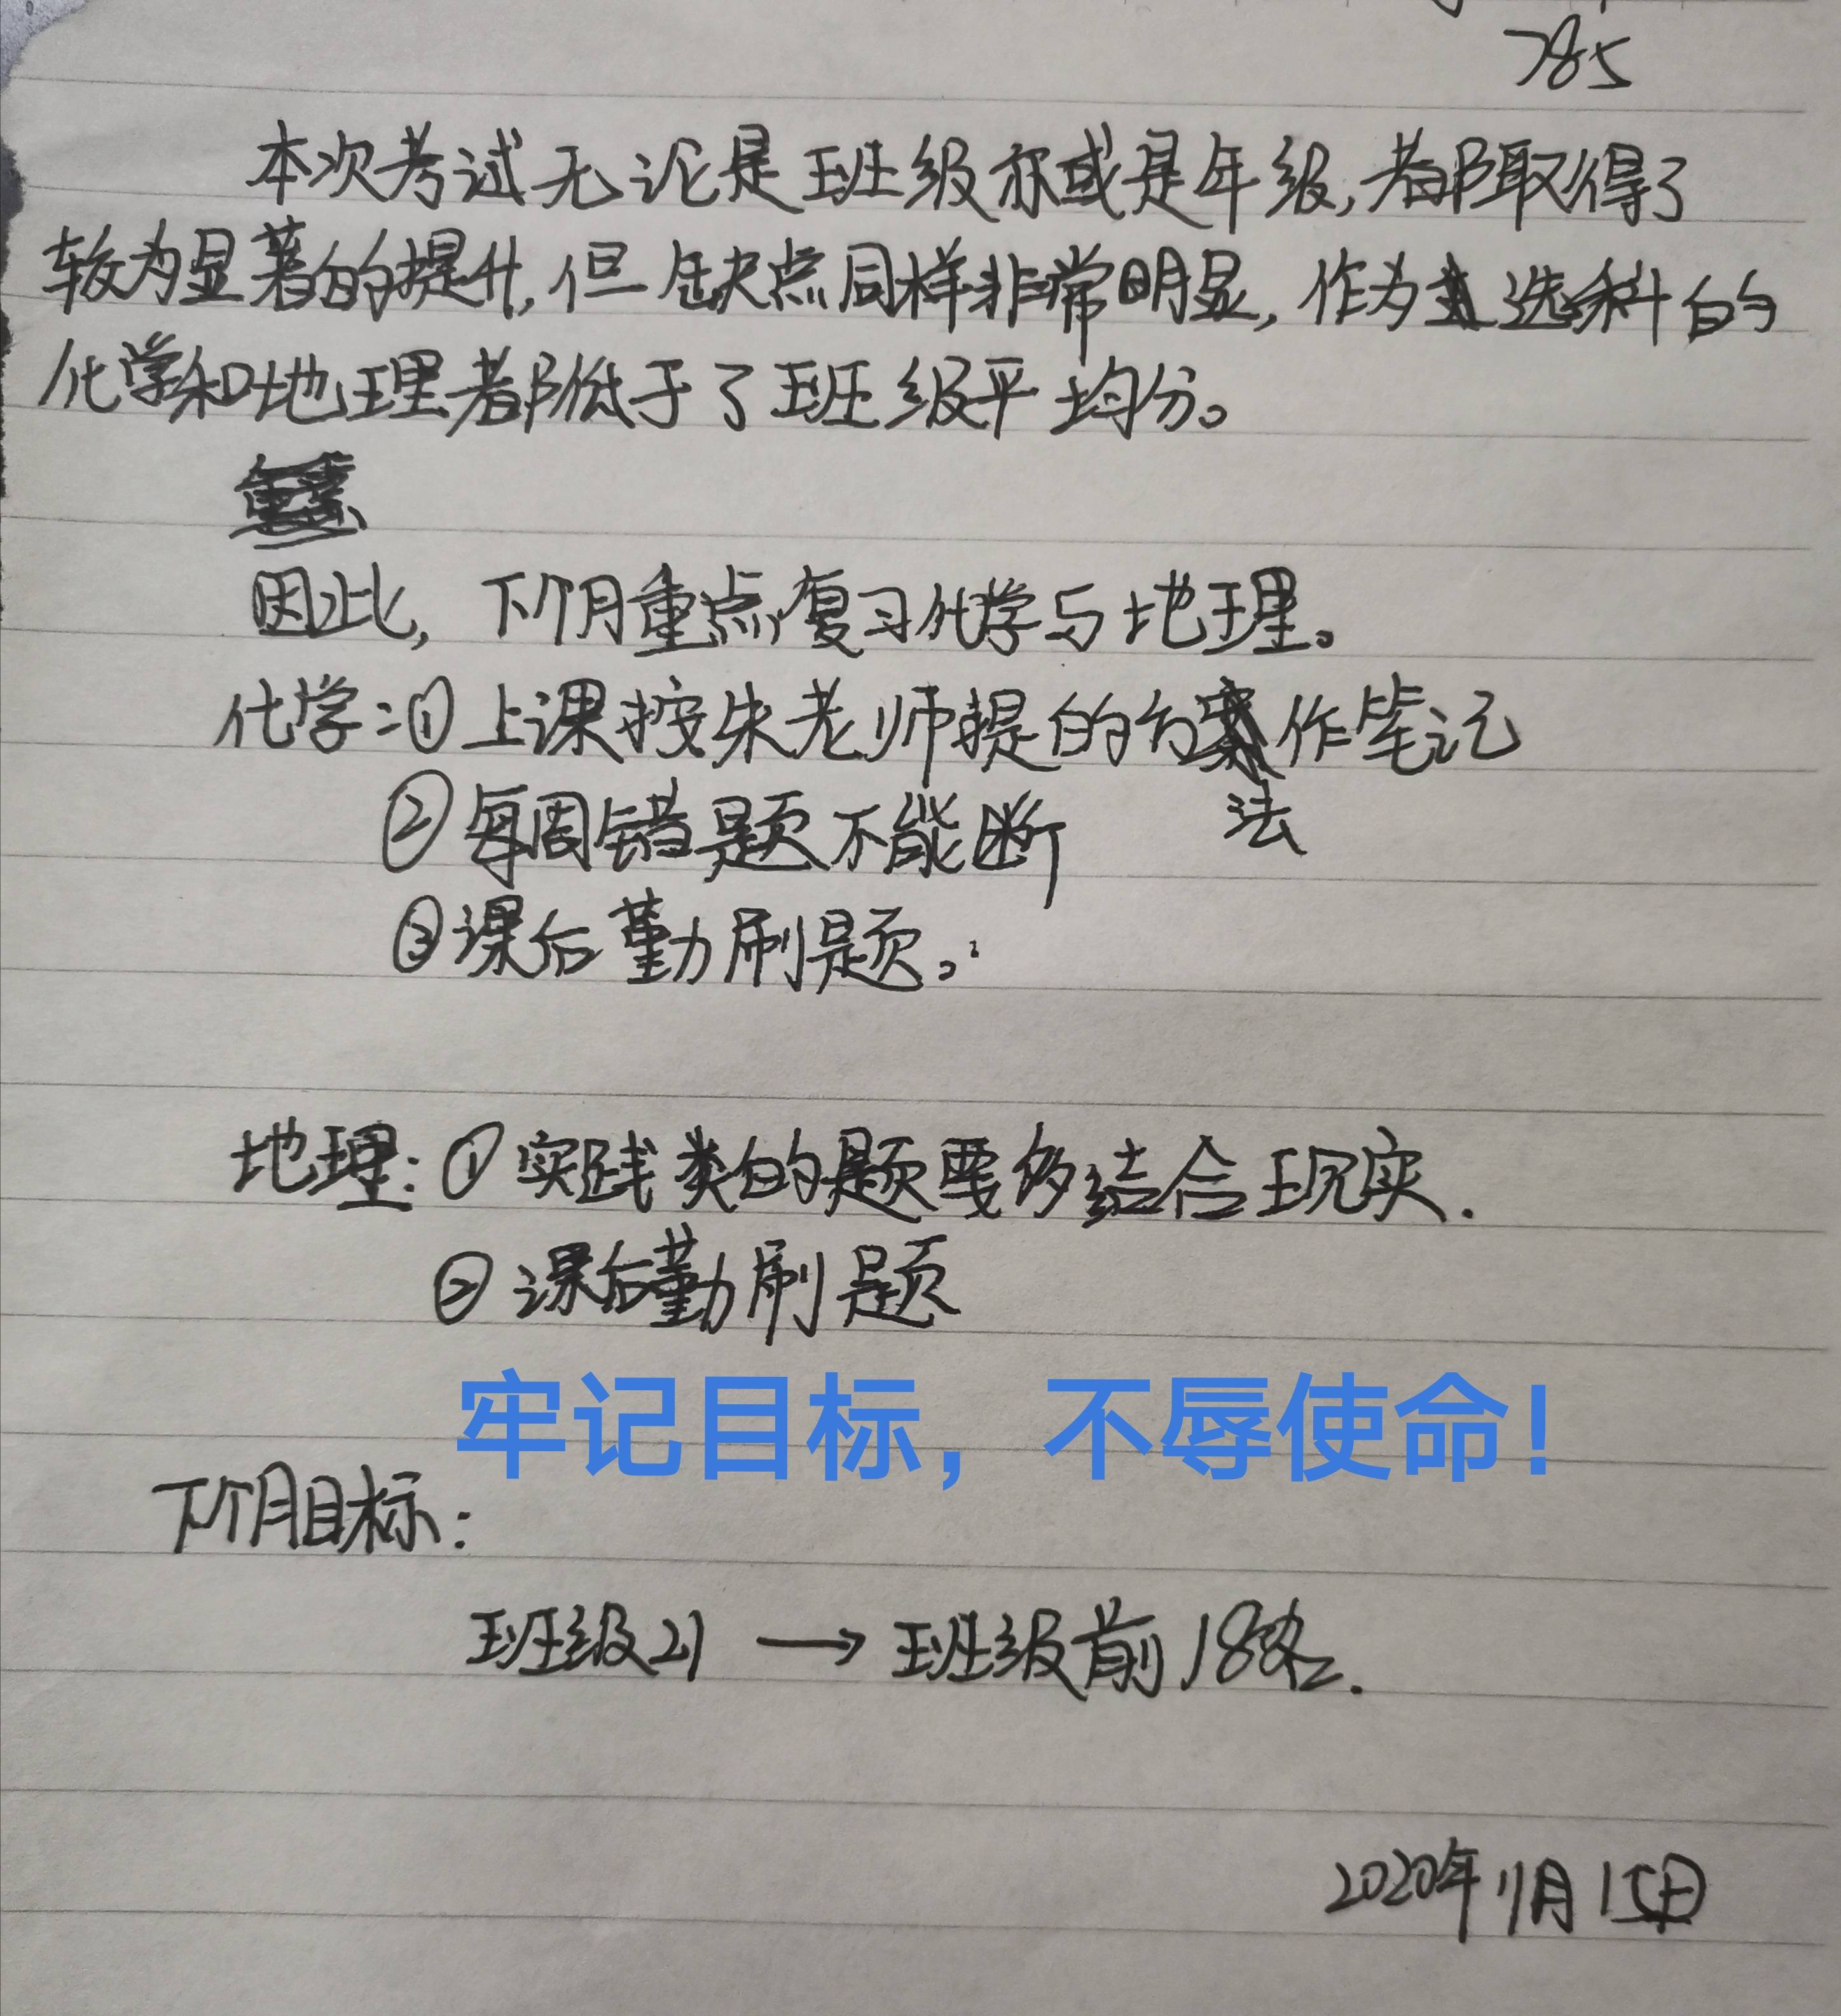 785
本次考试无论是班级亦或是年级,都取得了
较为显著的提升,但缺点同样非常明显,作为选科的
化学和地理都低于了班级平均分。
因此,下个月重点复习化学与地理。
化学:①上课按朱老师提的方法作笔记
②每周错题不能断
③课后勤刷题。
地理:①实践类的题要多结合现实.
②课后勤刷题
牢记目标，不辱使命！
下个月目标:
班级21 → 班级前18名.
2020年11月15日